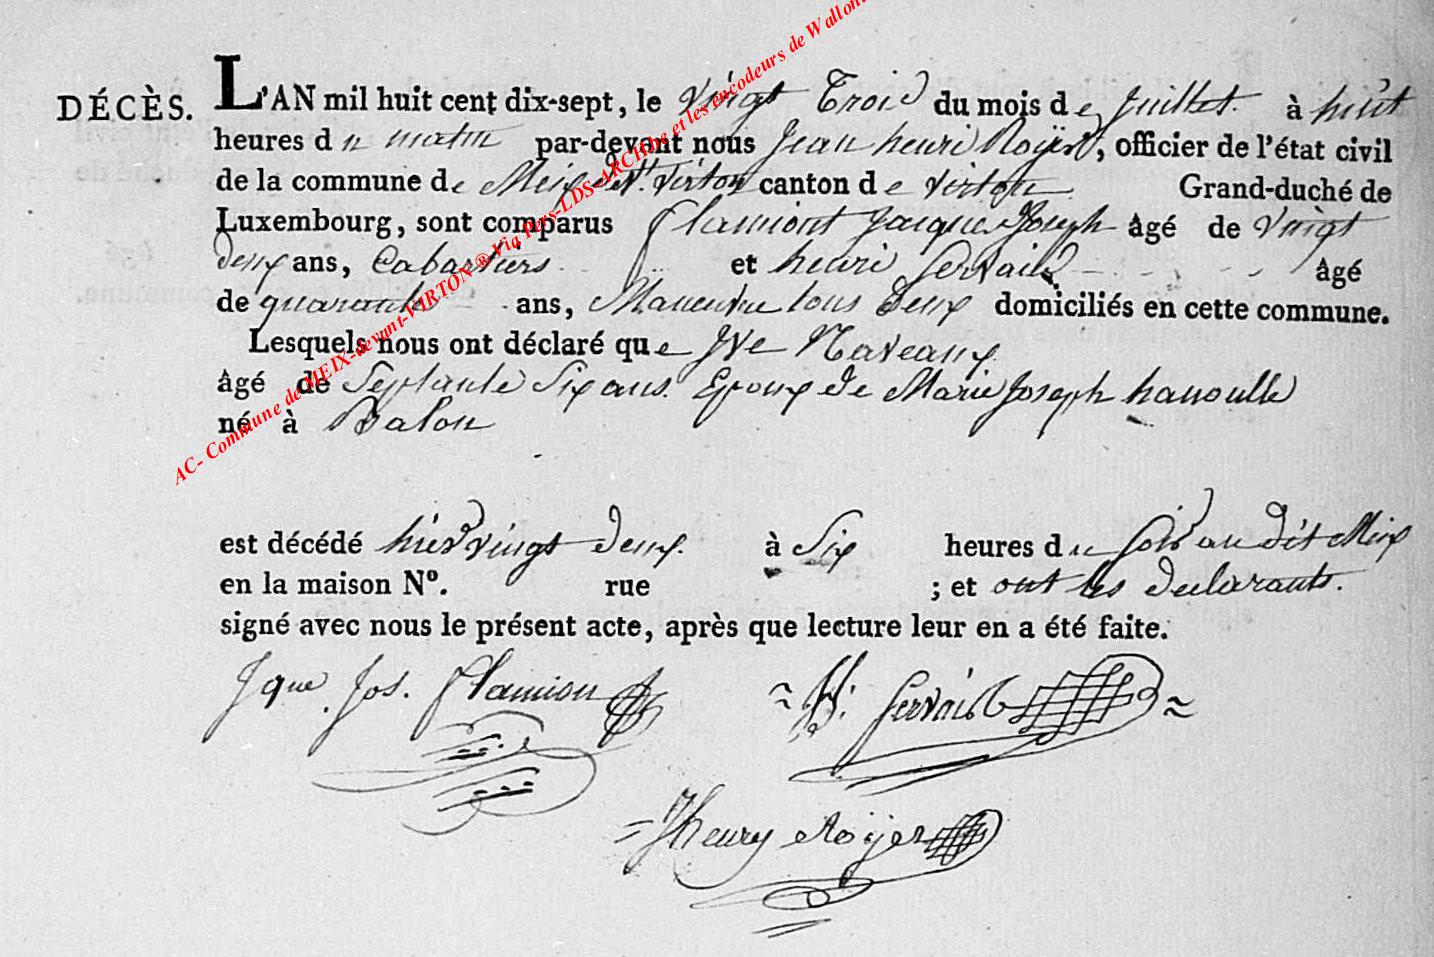 DÉCÈS. L'AN mil huit cent dix-sept, le vingt Trois du mois de Juillet à huit
heures du matin par-devant nous Jean henri Royer, officier de l'état civil
de la commune de Meix devt. Virton canton de virton Grand-duché de
Luxembourg, sont comparus flamiont Jacque Joseph âgé de vingt
deux ans, Cabartiers et henri Servais âgé
de quarante ans, Maneuvre tous deux domiciliés en cette commune.
Lesquels nous ont déclaré que Naveaux
âgé de Septante Six ans Epoux de Marie Joseph hanoulle
né à Balon
est décédé hier vingt deux à Six heures du soir au dit Meix
en la maison N°. rue ; et ont les declarants.
signé avec nous le présent acte, après que lecture leur en a été faite.
Jque Jos. flamion H: Servais
JHenry Roÿer
AC- Commune de MEIX-devant-VIRTON ® Via Pers-LDS-ARCHbe et les encodeurs de Wallon